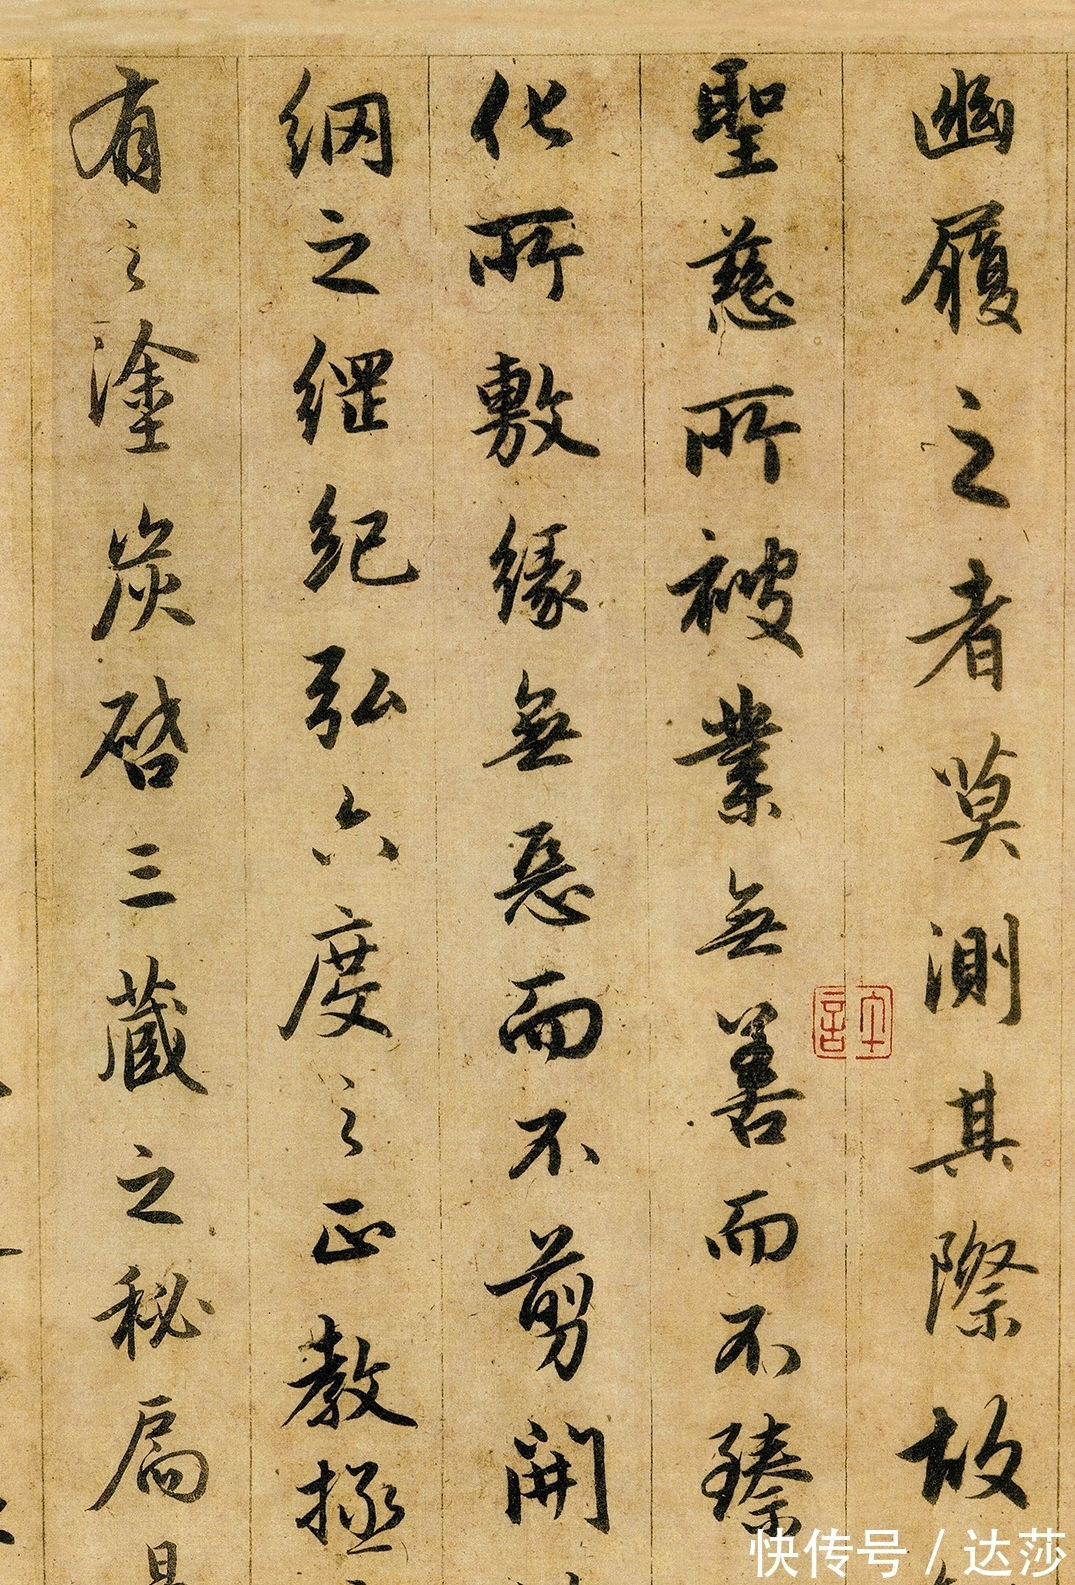 幽履之者莫測其際故
聖慈所被業無善而不臻
化所敷緣無惡而不剪開
綱之綱紀弘六度之正教拯
有之塗炭啓三藏之秘扃
快传号 / 达莎